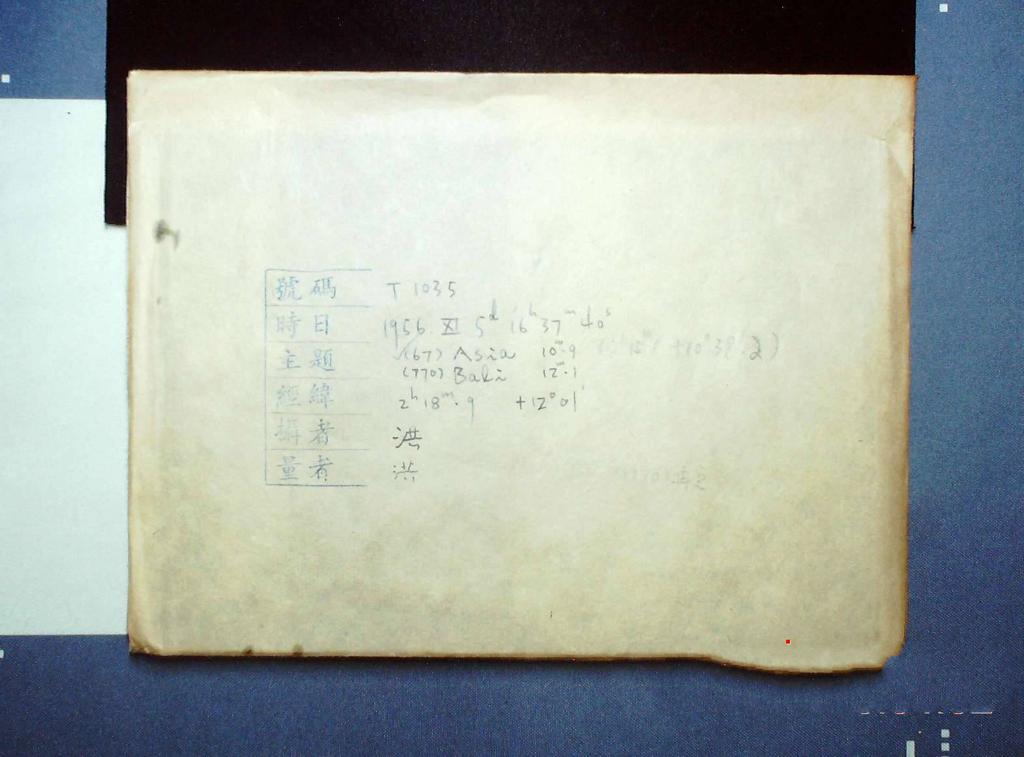 號碼 T 1035
時日 1956. XI 5ᵈ 16ʰ 37ᵐ 40ˢ
主題 (67) Asia 10ᵐ.9
(770) Bali 12ᵐ.1
經緯 2ʰ 18ᵐ.9 +12°01'
攝者 洪
量者 洪